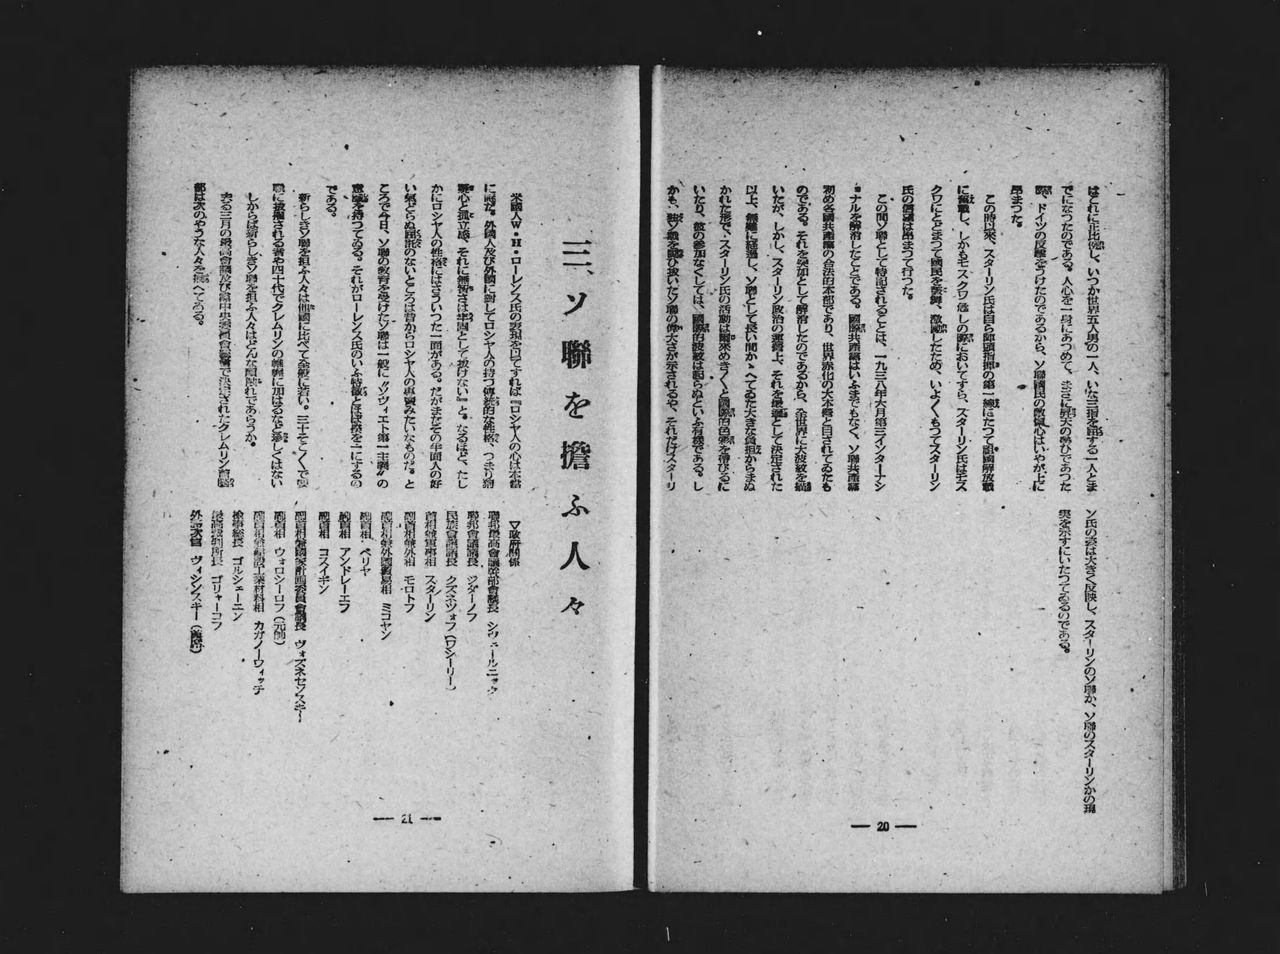 はとれに圧出し、いつか世界五人男の一人、いな三指を屈する一人とま
でになつたのである。人心を一身にあつめて、まさに昇天の勢ひであつた
際、ドイツの反撃をうけたのであるから、ソ聯國民の敵愾心はいやが上に
昂まつた。
この時以來、スターリン氏は自ら陣頭指揮の第一線にたつて祖國解放戰
に奮戰し、しかもモスクワ危しの際においてすら、スターリン氏はモス
クワにとどまつて國民を鼓舞、激勵したため、いよ〱もつてスターリン
氏の偉績は昂まつて行つた。
この間ソ聯として特記されることは、一九三八年六月第三インターナシ
ョナルを解消したことである。國際共産黨はいふまでもなく、ソ聯共産黨
初め各國共産黨の合法的本部であり、世界赤化の大本營と目されてゐたも
のである。それを突如として解消したのであるから、全世界に大波紋を描
いたが、しかし、スターリン政治の運營上、それを最善として決定された
以上、無難に經過し、ソ聯として長い間かゝへてゐた大きな負担からまぬ
かれた形で、スターリン氏の活動は爾來めき〱と國際的色彩を帶びるに
いたり、彼の參加なくしては、國際的波紋は起らぬといふ有樣である。し
かも、独ソ戰を戰ひ拔いたソ聯の偉大さが示されるや、それだけスターリ
ン氏の姿は大きく反映し、スターリンのソ聯か、ソ聯のスターリンかの現
実を示すにいたつてゐるのである。
— 20 —
三、ソ聯を擔ふ人々
米國人W・H・ローレンス氏の表現を口てすれば『ロシヤ人の心は本當
に謎だ。外國人及び外國に對してロシヤ人の持つ傳統的な性格、つまり猜
疑心と孤立感、それに無智さは牢固として拔けない』と。なるほど、たし
かにロシヤ人の性格にはさういつた一面がある。だがまたその半面人の好
い氣どらぬ屈託のないところは昔からロシヤ人の專賣みたいなものだ。と
ころで今日、ソ聯の教育を受けたソ聯は一般に〝ソヴィエト第一主義〟の
意識を持つてゐる。それがローレンス氏のいふ特徴とほぼ揆を一にするの
である。
新らしきソ聯を担ふ人々は他國に比べて全般に若い。三十そこ〱で要
職に拔擢される者や四十代でクレムリンの帷幄に加はるなら珍しくはない
しからば新らしきソ聯を担ふ人々はどんな顔触れであらうか。
去る三月の最高會議及び黨中央委員會總會で決定されたクレムリン首腦
部は次のやうな人々を揃へてゐる。
▽政府關係
聯邦最高會議幹部會議長　シヴェールニック
聯邦會議議長　ジダーノフ
民族會議議長　クズネツォフ（ワシーリー）
首相兼軍事相　スターリン
副首相兼外相　モロトフ
副首相兼外國貿易相　ミコヤン
副首相　ベリヤ
副首相　アンドレーエフ
副首相　コスイギン
副首相兼國家計画委員會議長　ヴォズネセンスキー
副首相　ウォロシーロフ（元帥）
副首相兼建設工業材料相　カガノーヴィッチ
檢事總長　ゴルシェーニン
最高裁判所長　ゴリャーコフ
外務次官　ヴィシンスキー（筆頭）
— 21 —